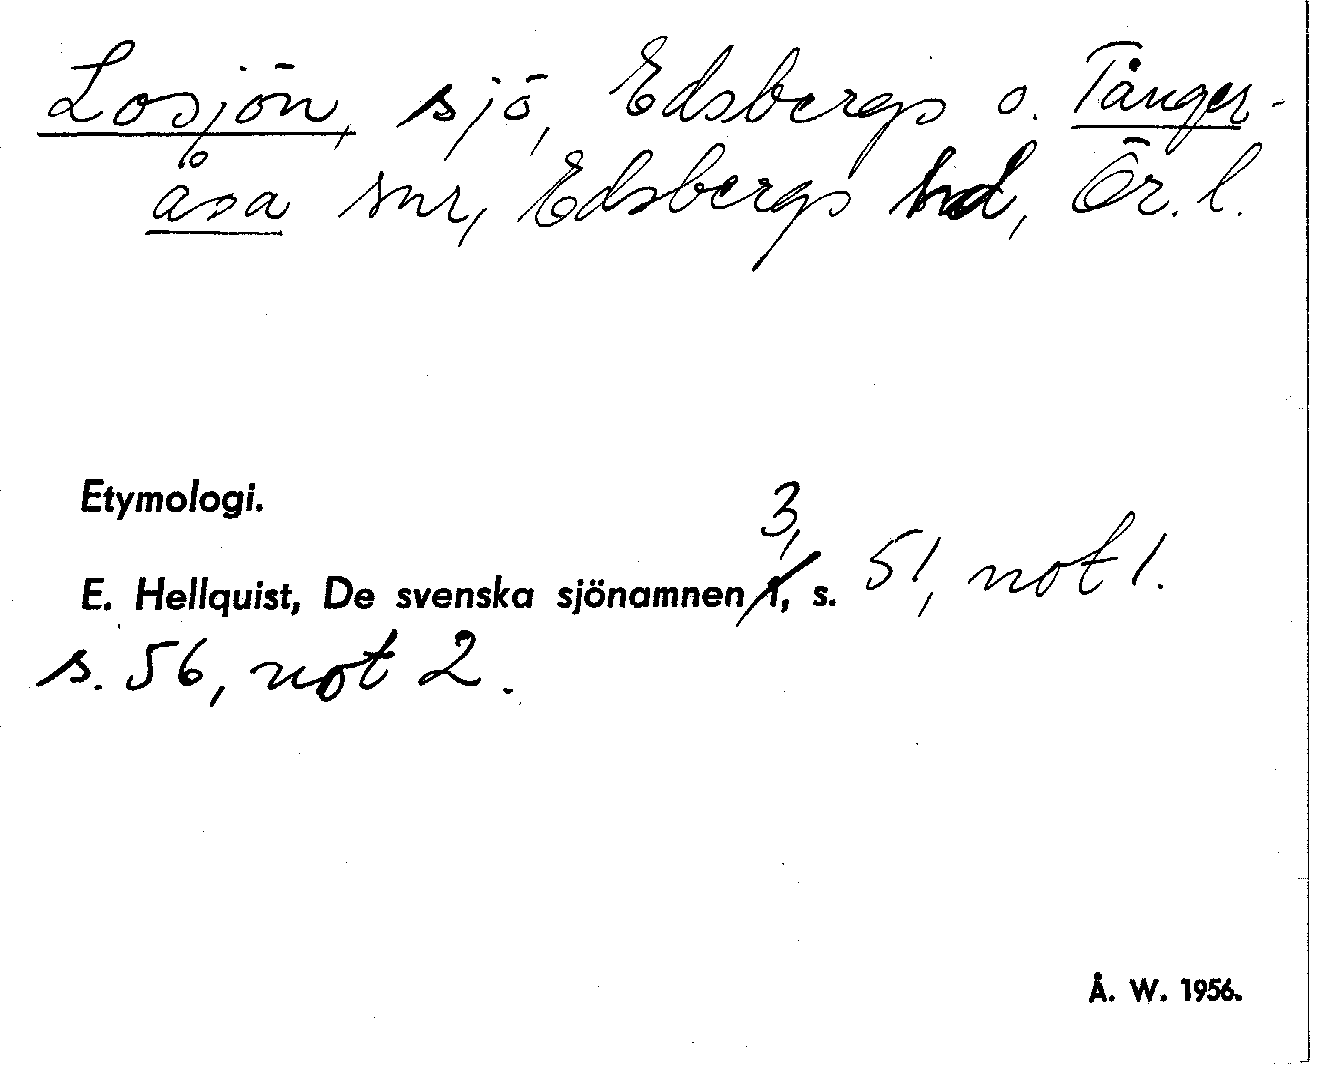 Losjön, sjö, Edsbergs o. Tånger-
åsa snr, Edsbergs hd, Ör. l.
Etymologi.
3,
E. Hellquist, De svenska sjönamnen 1, s. 51, not 1.
s. 56, not 2.
Å. W. 1956.